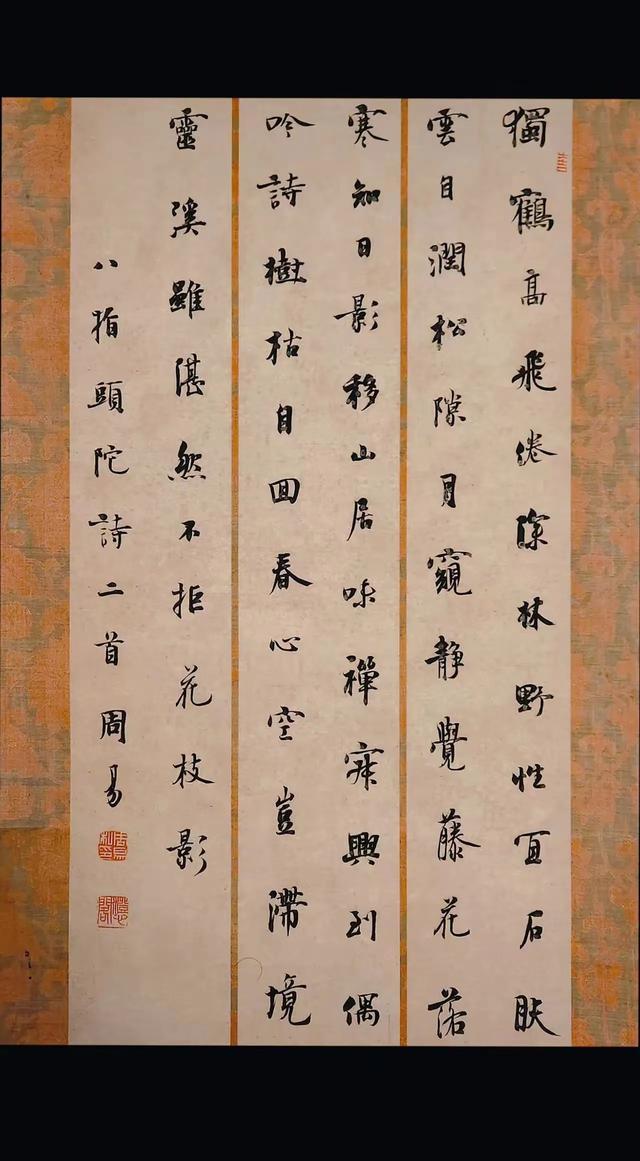 獨鶴高飛倦深林野性宜石肤
雲自潤松隙月窺靜覺藤花落
寒知日影移山居味禪寂興到偶
吟詩樹枯自回春心空豈滯境
靈溪雖湛然不拒花枝影
八指頭陀詩二首周易